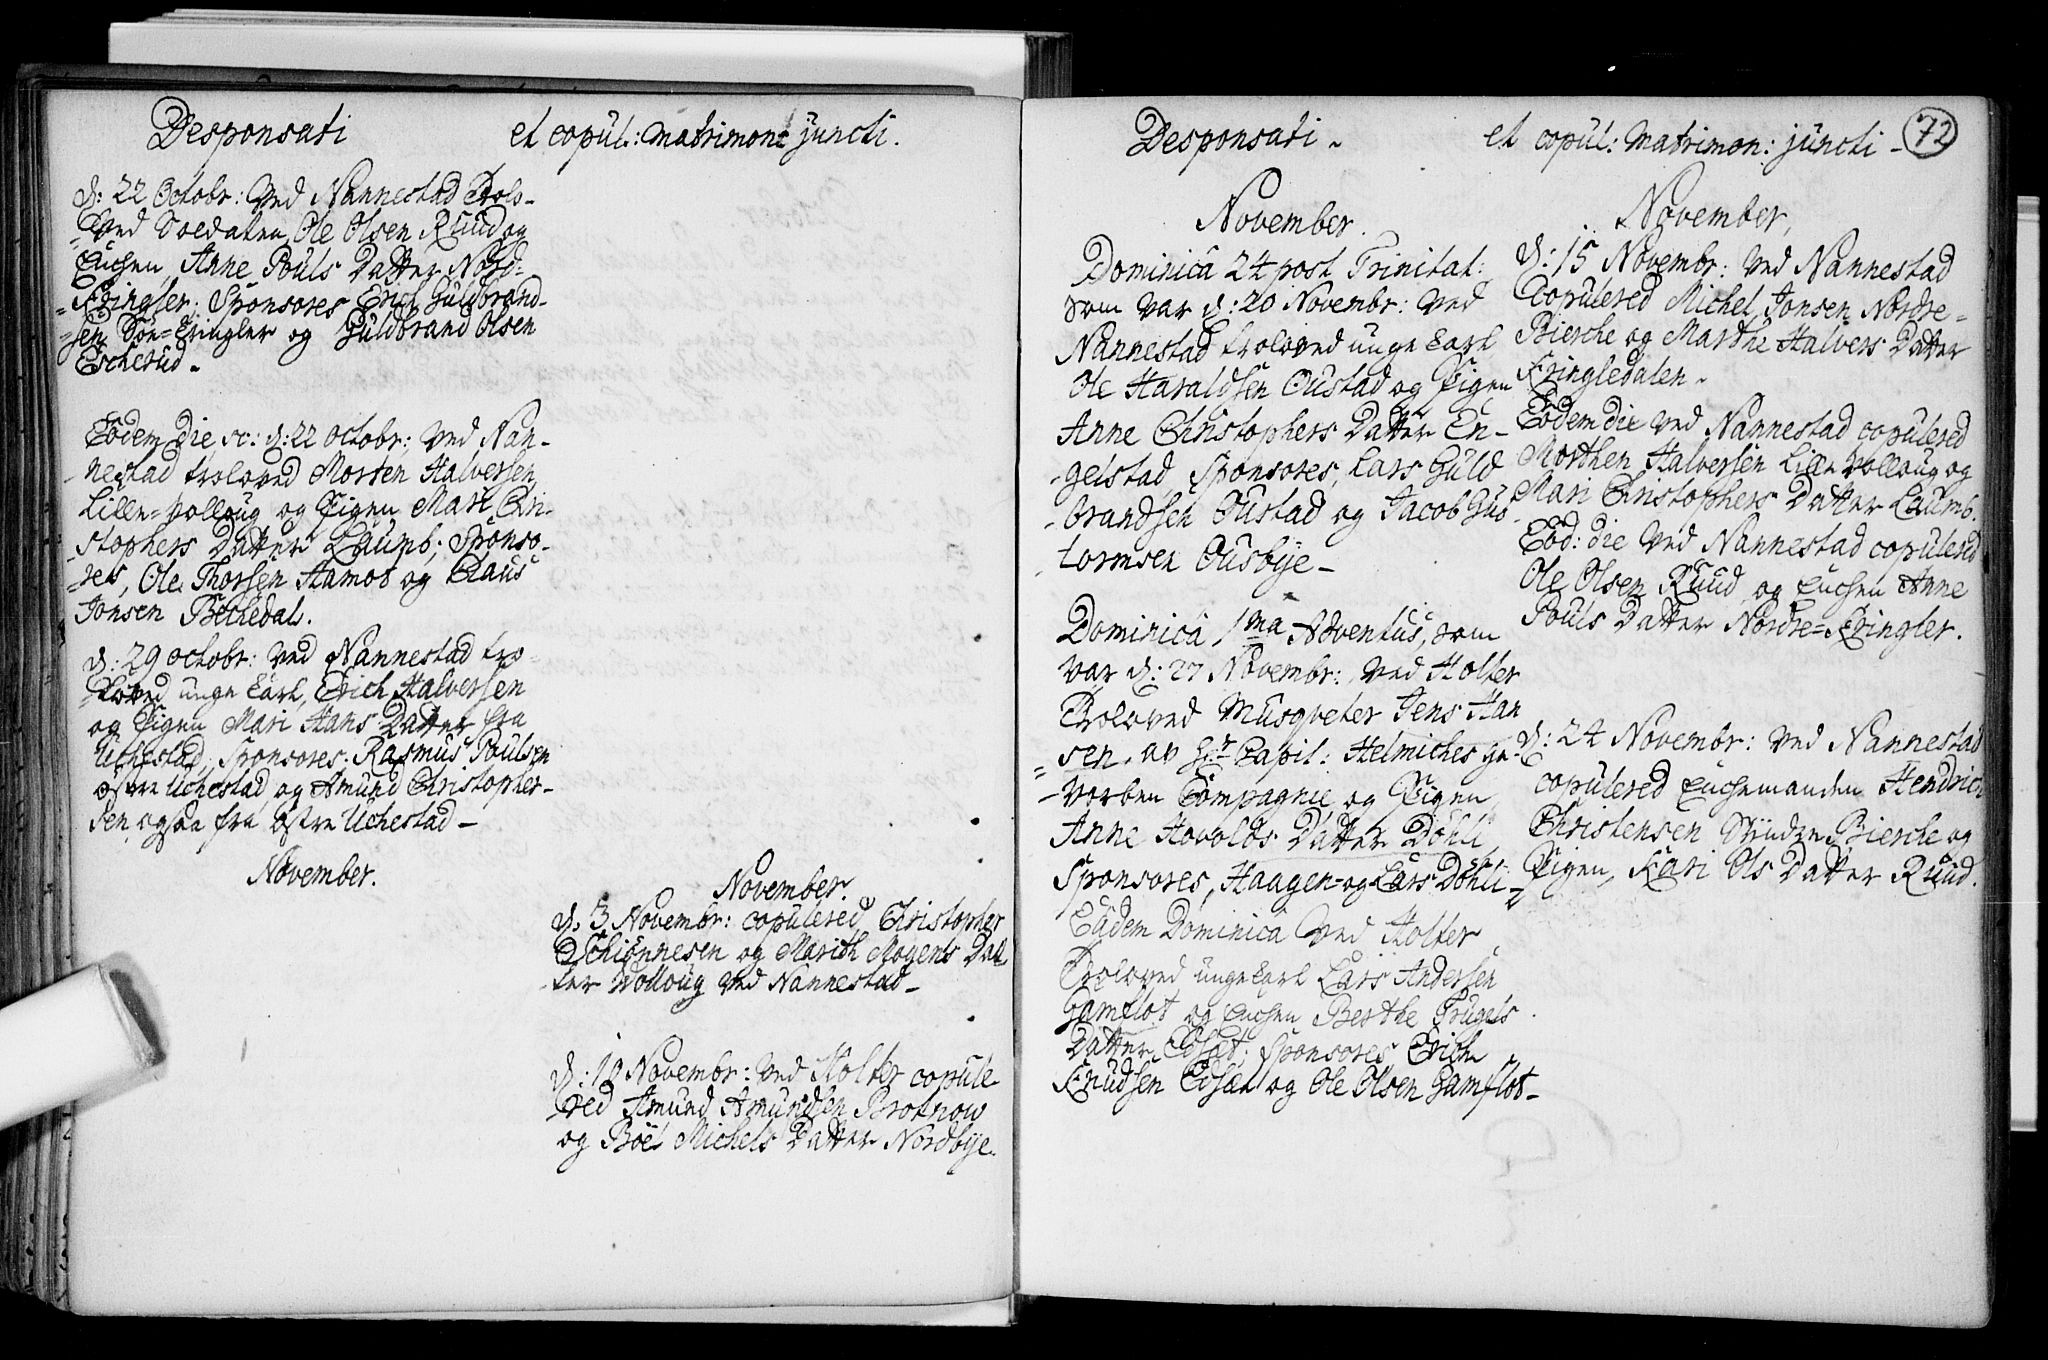 Desponsati
d: 22 Octobr: Ved Nannestad Trolo-
-ved Soldaten, Ole Olsen Ruud og
Enchen, Anne Pouls Datter Nord-
-Kringler; Sponsores Erich Guldbrand-
-sen Sør-Kringler og Guldbrand Olsen
Escherud.
Eodem Die, sc: d: 22 octobr: Ved Nan-
-nestad troloved Morten Halversen
Lille-Volloug og Pigen Mari Chri-
-stophers Datter Laumb; Sponso-
-res, Ole Thorsen Hamos og Claus
Jonsen Bechedal.
d: 29 octobr: Ved Nannestad tro-
-loved unge Karl, Erich Halversen
og Pigen Mari Hans Datter fra
Uchestad, Sponsores. Rasmus Poulsen
østre Uchestad og Amund Christopher-
sen ogsaa fra østre Uchestad-
November.
et copul: matrimon: juncti.
November.
d: 3 Novembr: copulered Christopher
Schiønnesen og Marith Mogens Dat-
-ter Volloug Ved Nannestad-
d: 10 Novembr: Ved Holter copule-
red Amund Amundsen Brotnow
og Böel Michels Datter Nordbye.
Desponsati-
November.
Dominica 24 post Trinitat:
som var d: 20 Novembr: Ved
Nannestad troloved unge Karl
Ole Haraldsen Oustad og Pigen
Anne Christophers Datter En-
-gelstad, Sponsores, Lars Guld
-brandsen Oustad og Jacob Gut
-tormsen Ousbye-
Dominica 1ma Adventus, som
var d: 27 Novembr: Ved Holter
Troloved Musqveter Jens Han
-sen. av Hr Capit: Helmiches ge-
-vorben Compagnie og Pigen
Anne Hovolds Datter Döhli
Sponsores, Haagen- og Lars Döhli-
Eadem Dominica Ved Holter
Troloved unge Karl Lars Andersen
Gamflot og Enchen Berthe Trugels
Datter Edset; Sponsores Erich
Knudsen Edset og Ole Olsen Gamflot-
et copul: matrimon: juncti- 72
November.
d: 15 Novembr: Ved Nannestad
Copulered Michel Jonsen Nordre-
Bierche og Marthe Halvers Datter
Kringledalen.
Eodem die Ved Nannestad copulered
Morthen Halversen Lille Volloug og
Mari Christophers Datter Laumb.
Eod: die Ved Nannestad copulered
Ole Olsen Ruud og Enchen Anne
Pouls Datter Nordre-Kringler.
d: 24 Novembr: Ved Nannestad
copulered Enchemanden Hendrich
Christensen Søndre Bierche og
Pigen, Kari Ols Datter Ruud.